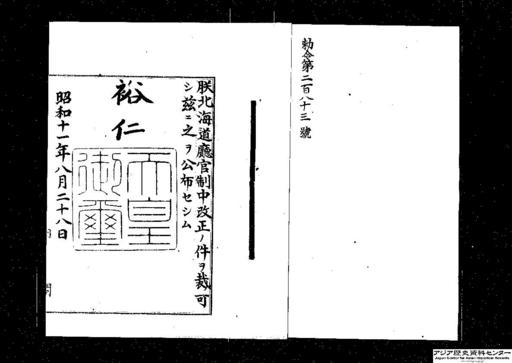 勅令第二百八十三號
朕北海道廳官制中改正ノ件ヲ裁可
シ茲ニ之ヲ公布セシム
裕仁
天皇
御璽
昭和十一年八月二十八日
アジア歴史資料センター
Japan Center for Asian Historical Records